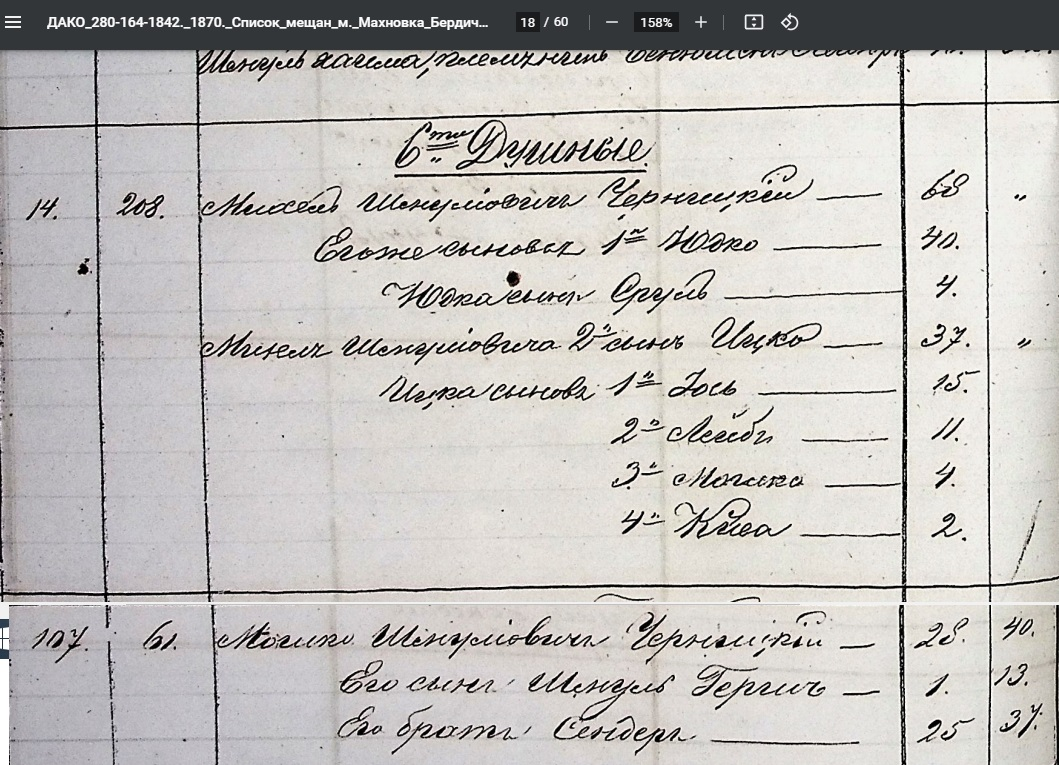 ДАКО_280-164-1842._1870._Список_мещан_м._Махновка_Бердич... 18 / 60 158%
6ти Душные.
14. 208. Шмулёовичъ Черницкій — 68 "
Его же сыновья 1й Юдко — 40.
Юдка сынъ Сруль — 4.
Шмулёовича 2й сынъ Ицко — 37. "
Ицка сыновья 1й Іось — 15.
2й Лейбъ — 11.
3й Мошко — 4.
4й — 2.
107. 61. Мошко Шмулёовичъ Черницкій — 28. 40.
Его сынъ Шмуль Гершъ — 1. 13.
Его братъ Сендеръ — 25 37.